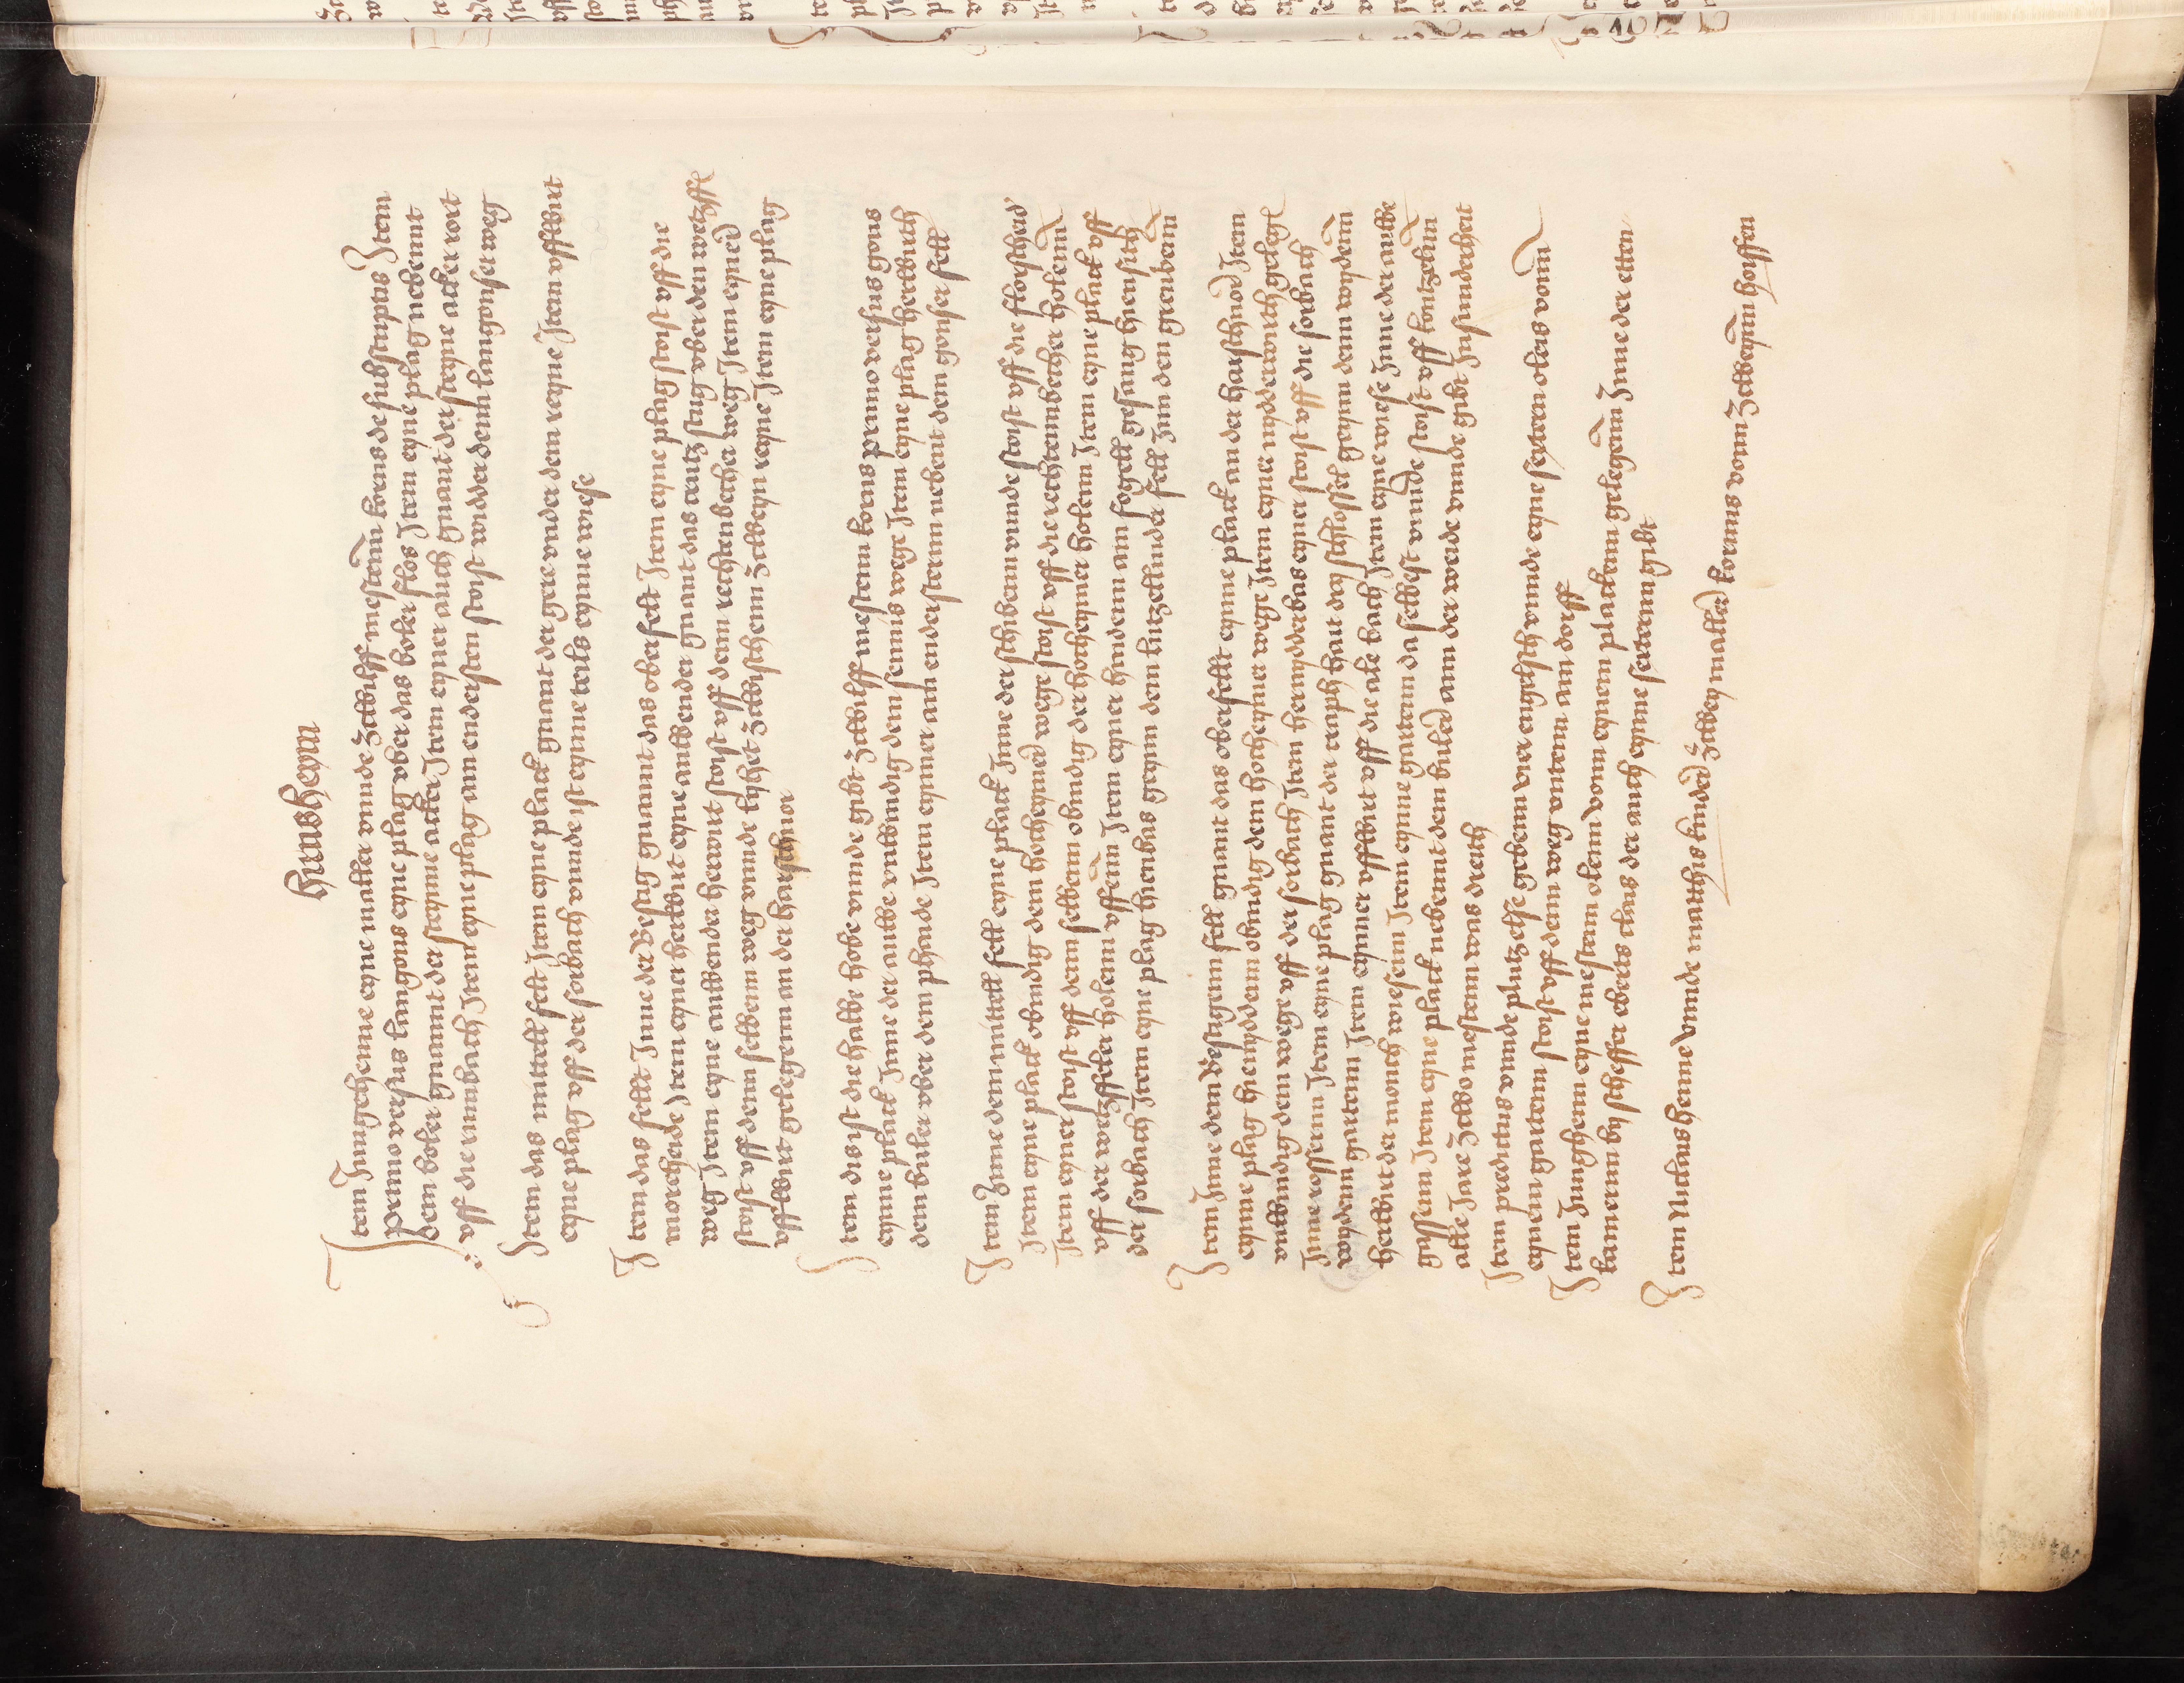 Hensheym
Item Junghenne eyne malter vnnde Zcwilff mesten korns de subscriptis Item
Primo versus langons eyne plag vber das boler flos Item eyne plag nebennt
dem boler gnannt der steyne acker Item eyner auch gnant der steyne acker rort
vff die rinnbach Item eyne plag ann enderstenn stoist widder denn langonser weg
Item das mittell felt Item eyne plack gnant der gere vnder dem reyne Item vffwirt
eyne plag vff der sorbach vnnde ist eynne teils eynne wiese
Item das fellt Inne der Westig gnannt das ober felt Item eyne plag stoist vff die
morcheide Item eyner herwirt eyne anwender gnant das crutz stug vber den wetzffl
weg Item eyne anwender herwirt stoist vff denn rechtenbecher weg Item eyner
stoist vff denn selbenn weg vnnde lyhet Zcwischenn Zcweyn reyne Item eyne plag
vffwirt gelegenn an der harschnor
Item dis ist die halbe hobe vnnde gibt Zcwilff mesten korns primo versus gons
eynne plack Inne der anwe vnwendig dem sennis wege Item eyne plag herwirth
dem buler vber dem phade Item eynner am enderstenn nebent dem gonser felt
Item Inne dem mittell felt eyne plack Inne der schibenn vnnde stoist vff die floischeid
Item eyne plack obendig dem hocheymer wege stoist vff die rechtennbecher holenn
Item eyner stoist vff denn selbenn obendig der hocheymer holenn Item eyne plack vff
vff der wetzffeler holenn vffenn Item eyner hindenn ann fogell gesang hiensith
der sorbach Item eyne plag hienbas geynn dem lutzellinder felt Inn den grenbenn
Item Inne dem Westigenn felt gnant das oberfellt eynne plack an der harschnor Item
eynne plag hienyddenn obendig dem hocheymer wege Item eyner nydderwirth gelegt
vnwendig dem wege vff der sorbach Item hernydderbas eyner stoist vff die sorbach
Inne rossernn Item eyne plag gnant der craph hait dry schlossel geynn denn wydenn
wydenn gartenn Item eynner vffwirt vff die ale bach Item eyne wiese Inne der anwe
herwirt der monch wiesenn Item eynne gartenn daselbest vnnde stoist vff kontzchin
gyssenn Item eyne plack nebennt dem buler ann der weide vnnde gibt Insunderheit
alle Jare Zcwo mestenn was dreith
Item predictus vnnde plutzelse gebenn vier engelsch vnnde eyne sextern oleis vonn
eynem gartenn stoist vff denn weg vntenn am dorff
Item Junghenn eyne mestenn olenn vonn eynem plackenn gelegenn Inne der etten
kamernn by scheffer eberts clas der auch eynne sexternn gibt
Item Niclas henne vnnde matthis kinder Zcwey malter korns vonn Zcweynn hoiffen